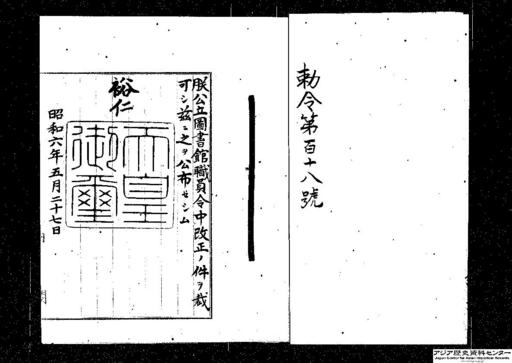 勅令第百十八號
朕公立圖書館職員令中改正ノ件ヲ裁
可シ茲ニ之ヲ公布セシム
裕仁
天皇
御璽
昭和六年五月二十七日
アジア歴史資料センター
Japan Center for Asian Historical Records